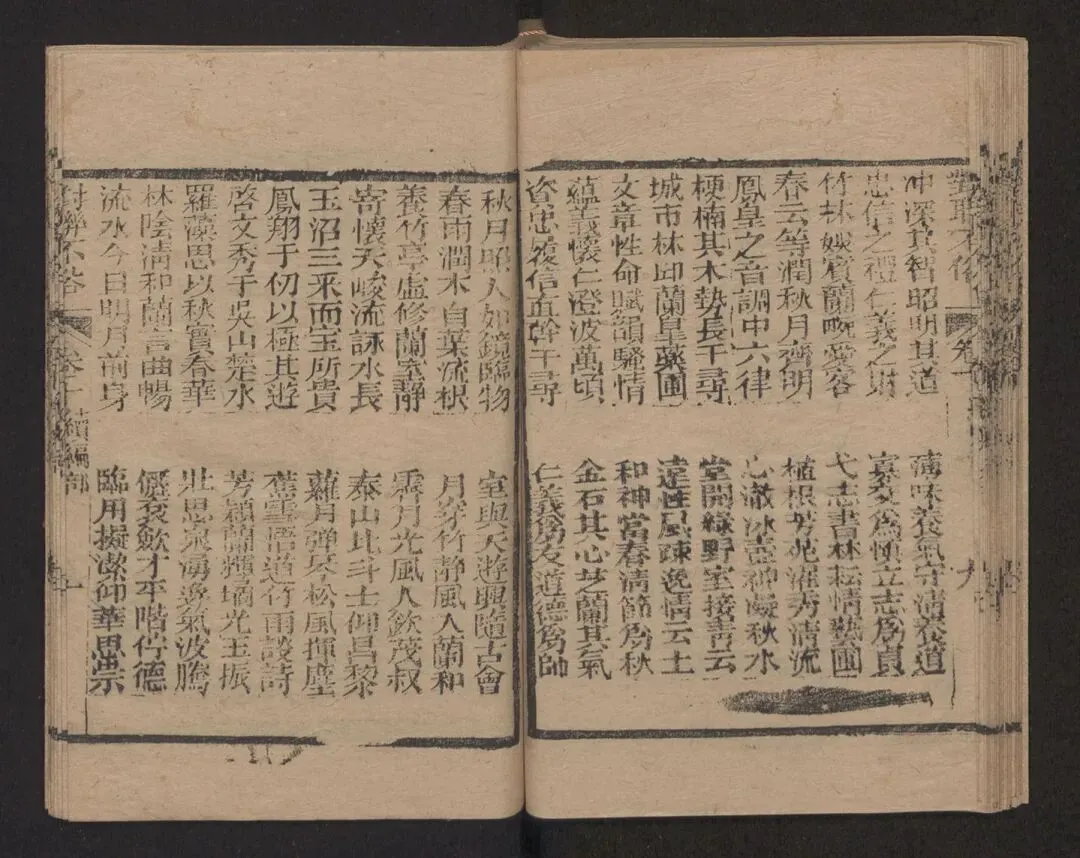 對聯不俗 卷一 九
冲深其智昭明其道
忠信之禮仁義之財
竹林娱賓蘭畹愛客
春云等潤秋月齊明
鳳皇之音調中六律
梗楠其木勢長千尋
城市林邱蘭皐藥圃
文章性命賦頟騷情
蘊義懷仁澄波萬頃
資忠履信直幹千尋
味養氣守清養道
寡交為慎立志為貞
弋志書林耘情藝圃
植根芳苑濯秀清流
心澈冰壺神凝秋水
堂開綠野室接青云
遠性風疎逸情云上
和神當春清節為秋
金石其心芝蘭其氣
仁義為友道德為師
秋月照人如鏡臨物
春雨潤木自葉流根
養竹亭虛修蘭室静
寄懷天峻流詠水長
玉沼三采而宝所貴
鳳翔于仞以極其遊
啓文秀于吳山楚水
羅藻思以秋實春華
林陰清和蘭言曲暢
流水今日明月前身
室與天遊興隨古會
月穿竹静風入蘭和
霽月光風人欽茂叔
泰山北斗士仰昌黎
蘿月彈琴松風揮麈
蕉雪悟道竹雨談詩
芳穎蘭揮光玉振
壯思泉湧逸氣波騰
偃蹇斂才平階佇德
臨用擬潔仰華思崇
對聯不俗 卷一 續編部 一